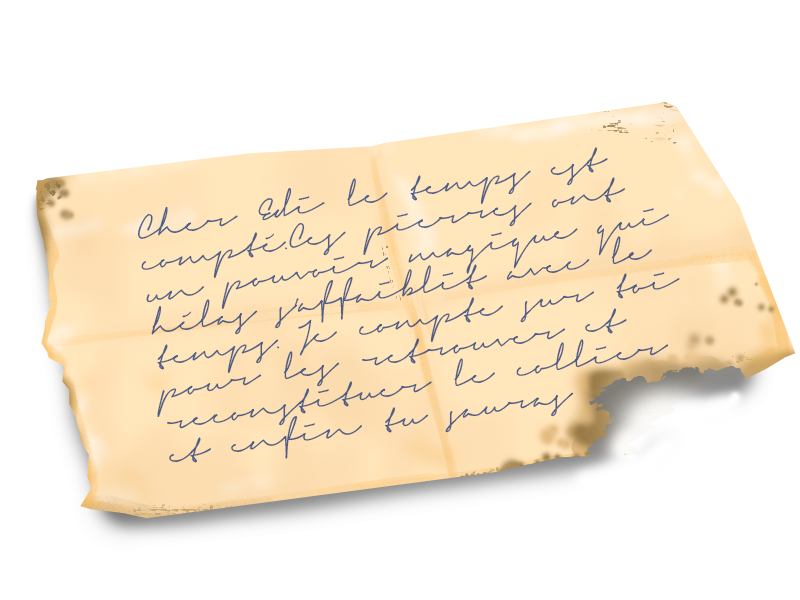 Cher Edi le temps est
compté. Ces pierres ont
un pouvoir magique qui
hélas s'affaiblit avec le
temps. Je compte sur toi
pour les retrouver et
reconstituer le collier
et enfin tu sauras